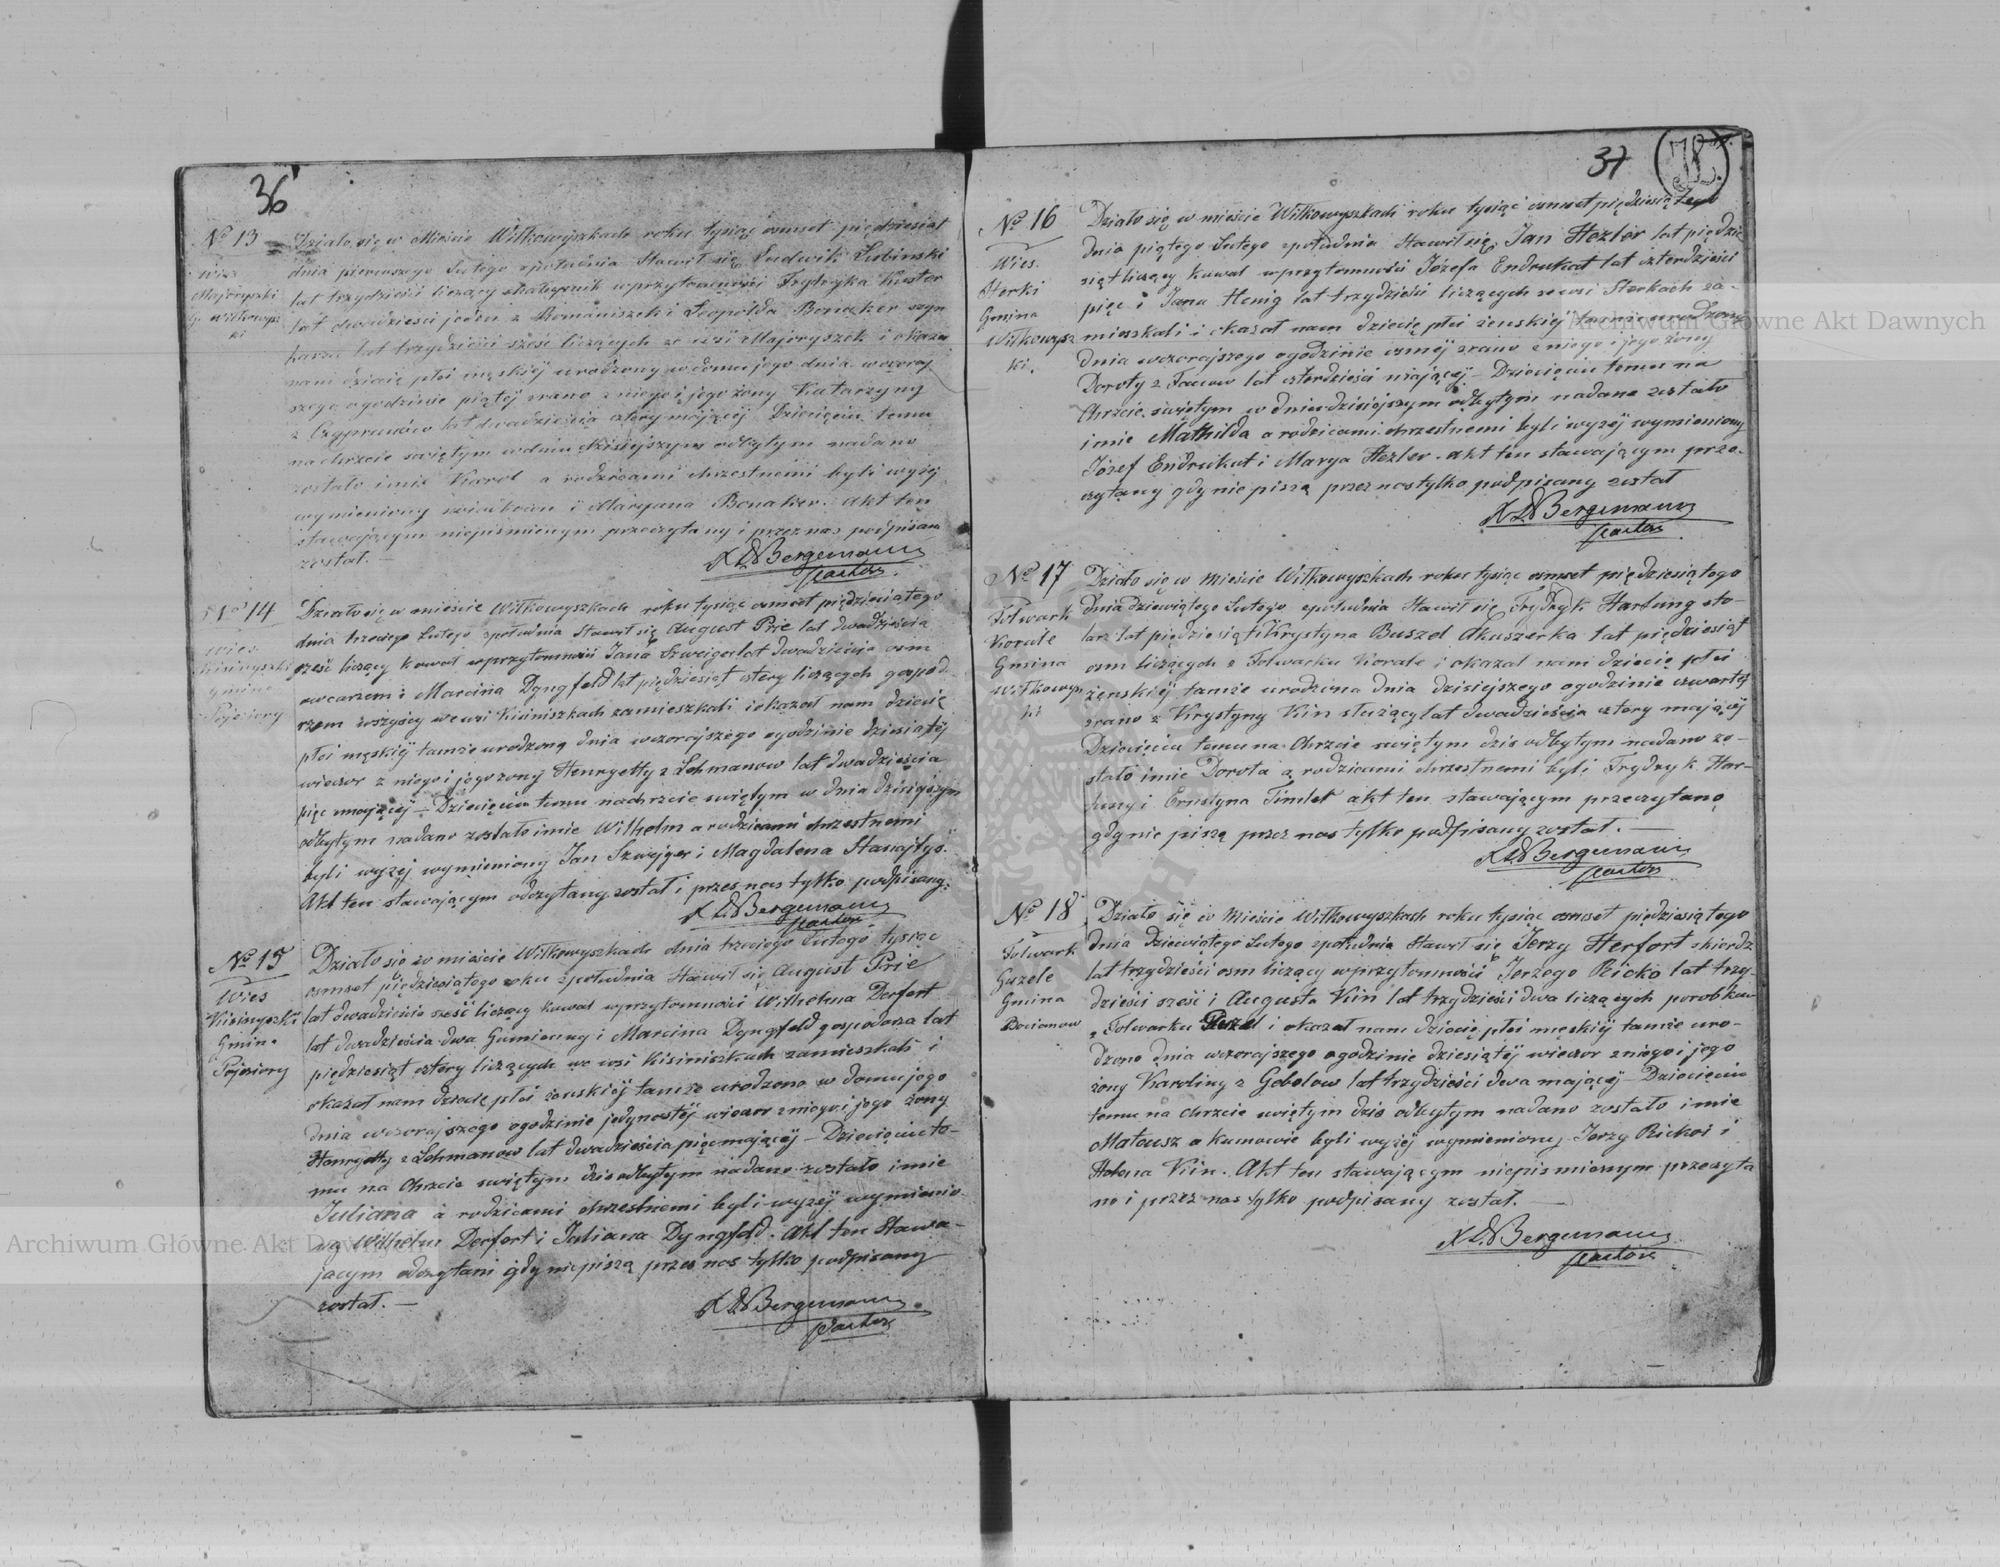 36
№ 13
Wieś
Majoryszki
G. Wiłkowysz
ki
Działo się w Mieście Wiłkowyszkach roku tysiąc osmset pięćdziesiąt
dnia pierwszego Lutego zpołudnia Stawił się Ludwik Lubinski
lat trzydzieści liczący w przytomności Frydryka Kuster
lat dwadzieścia jeden z Romaniszek i Leopolda Bonaker
lat trzydzieści szesc liczących ze wsi Majoryszek i okazał
nam dziecię płci męskiéj urodzony w domu jego dnia wczoraj
szego ogodzinie piątéj zrano z niego i jego żony Katarzyny
z lat dwadzieścia cztery mającéj Dziecięciu temu
na chrzcie swiętym w dniu dzisiejszym odbytym nadano
zostało imie Karol a rodzicami chrzestnemi byli wyżéj
wymieniony i Maryana Bonaker. Akt ten
stawającym niepismiennym przeczytany i przez nas podpisan
został. —
K L W Bergemann
Pastor.
№ 14
Wieś
Kisiniszki
Gmina
Pojeziory
Działo się w mieście Wiłkowyszkach roku tysiąc osmset pięćdziesiątego
dnia trzeciego Lutego zpołudnia Stawił się August Prie lat dwadzieścia
sześć liczący kowal w przytomności Jana Szweiger lat dwadzieścia osm
owczarzem i Marcina Dyngfeld lat pięćdziesiąt cztery liczących gospod
rzem wszyscy we wsi Kisiniszkach zamieszkali i okazał nam dziecię
płci męskiéj tamże urodzoną dnia wczorajszego ogodzinie dziesiątéj
wieczor z niego i jego zony Henryetty z Lehmanow lat dwadzieścia
pięc mającéj — Dziecięciu temu na chrzcie swiętym w dniu dzisiejszym
odbytym nadano zostało imie Wilhelm a rodzicami chrzestnemi
byli wyżéj wymieniony Jan Szwejger i Magdalena Stanajtys.
Akt ten stawającym odczytany został i przez nas tylko podpisany.
K L W Bergemann
Pastor.
№ 15
Wies
Kisiniszki
Gmina
Pojeziory
Działo się w mieście Wiłkowyszkach dnia trzeciego Lutego tysiąc
osmset pięćdziesiątego roku zpołudnia Stawił się August Prie
lat dwadzieście sześć liczący kowal w przytomności Wilhelma Derfort
lat dwadzieścia dwa Gumienny i Marcina Dyngfeld gospodarza lat
pięćdziesiąt cztery liczących we wsi Kisiniszkach zamieszkali i
okazał nam dziecię płci żeńskiéj tamże urodzono w domu jego
dnia wczorajszego ogodzinie jedynastéj wieczor z niego i jego żony
Henryetty z Lehmanow lat dwadzieścia pięc mającéj — Dziecięciu te-
mu na Chrzcie swiętym dzis odbytym nadano zostało imie
Juliana a rodzicami chrzestnemi byli wyżéj wymienio
ny Wilhelm Derfort i Juliana Dyngfeld. Akt ten Stawa-
jącym odczytani gdy niepiszą przez nas tylko podpisany
został. —
K L W Bergemann.
Pastor
37
№ 16
Wies.
Sterki
Gmina
Wiłkowysz
ki.
Działo się w mieście Wiłkowyszkach roku tysiąc osmset pięćdziesiątego
dnia piątego Lutego zpołudnia Stawił się Jan Hezler lat pięćdzie
siąt liczący kowal w przytomności Józefa Endrukat lat czterdzieści
pięc i Jana Henig lat trzydzieści liczących we wsi Sterkach za-
mieszkali i okazał nam dziecię płci żeńskiéj tamże urodzoną
dnia wczorajszego ogodzinie osméj zrano z niego i jego żony
Doroty z lat czterdzieści mającéj — Dziecięciu temu na
Chrzcie swiętym w dniu dzisiejszym odbytym nadane zostało
imie Mathilda a rodzicami chrzestnemi byli wyżéj wymieniony
Józef Endrukat i Marya Hezler. Akt ten stawającym prze-
czytany gdy nie piszą przez nas tylko podpisany został
K L W Bergemann
Pastor.
№ 17
Folwark
Korale
Gmina
Wiłkowysz
ki
Działo się w Mieście Wiłkowyszkach roku tysiąc osmset pięćdziesiątego
dnia dziewiątego Lutego zpołudnia Stawił się Frydryk Hartung sto-
larz lat pięćdziesiąt i Krystyna Buszel Akuszerka lat pięćdziesiąt
osm liczących z Folwarku Korale i okazał nam dziecię płci
żeńskiéj tamże urodzona dnia dzisiejszego ogodzinie czwartéj
zrano z Krystyny Kin służący lat dwadzieścia cztery mającéj
Dziecięciu temu na Chrzcie swiętym dzis odbytym nadano zo-
stało imie Dorota a rodzicami chrzestnemi byli Frydryk Har-
tung i Ernstyna Timlet akt ten stawającym przeczytano
gdy nie piszą przez nas tylko podpisany został. —
K L W Bergemann
Pastor
№ 18
Folwark
Guzele
Gmina
Działo się w Mieście Wiłkowyszkach roku tysiąc osmset pięćdziesiątego
dnia dziewiątego Lutego zpołudnia Stawił się Jerzy Herfort skierdz
lat trzydzieści osm liczący w przytomności Jerzego Ricko lat trzy-
dzieści sześć i Augusta Kin lat trzydzieści dwa liczących parobkow
z Folwarku i okazał nam dziecię płci męskiéj tamże uro-
dzono dnia wczorajszego ogodzinie dziesiątéj wieczor z niego i jego
żony Karoliny z Gebolow lat trzydzieści dwa mającéj — Dziecięciu
temu na chrzcie swiętym dzis odbytym nadano zostało imie
Mateusz a kumowie byli wyżéj wymieniony Jerzy Rickoi i
Helena Kin. Akt ten stawającym niepismiennym przeczyta
no i przez nas tylko podpisany został. —
K L W Bergemann
Pastor
Archiwum Główne Akt Dawnych
Archiwum Główne Akt Dawnych